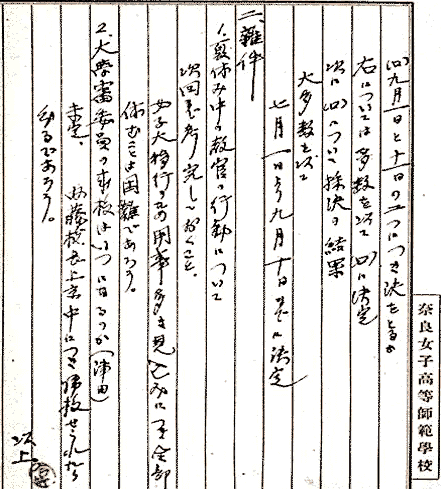 (ロ)九月一日と十一日の二つにつき決をとるも
右については多数を以て(ロ)に決定
次に(ロ)について採決の結果
大多数を以て
七月一日より九月十日までに決定
二、雑件
1、夏休み中の教官の行動について
次回までに考究しおくこと、
女子大移行のため用事多き見込みにつき全部
休むことは困難であろう。
2、大学審委員の来校はいつになるか(津田)
未定、藤校長上京中につき帰校せられたら
わかるであろう。
以上
奈良女子高等師範學校